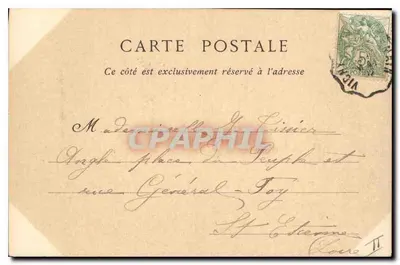 CARTE POSTALE
Ce côté est exclusivement réservé à l'adresse
CPAPHIL
Mademoiselle
Angle place du Peuple et
rue Général-Foy
St Etienne
Loire
II